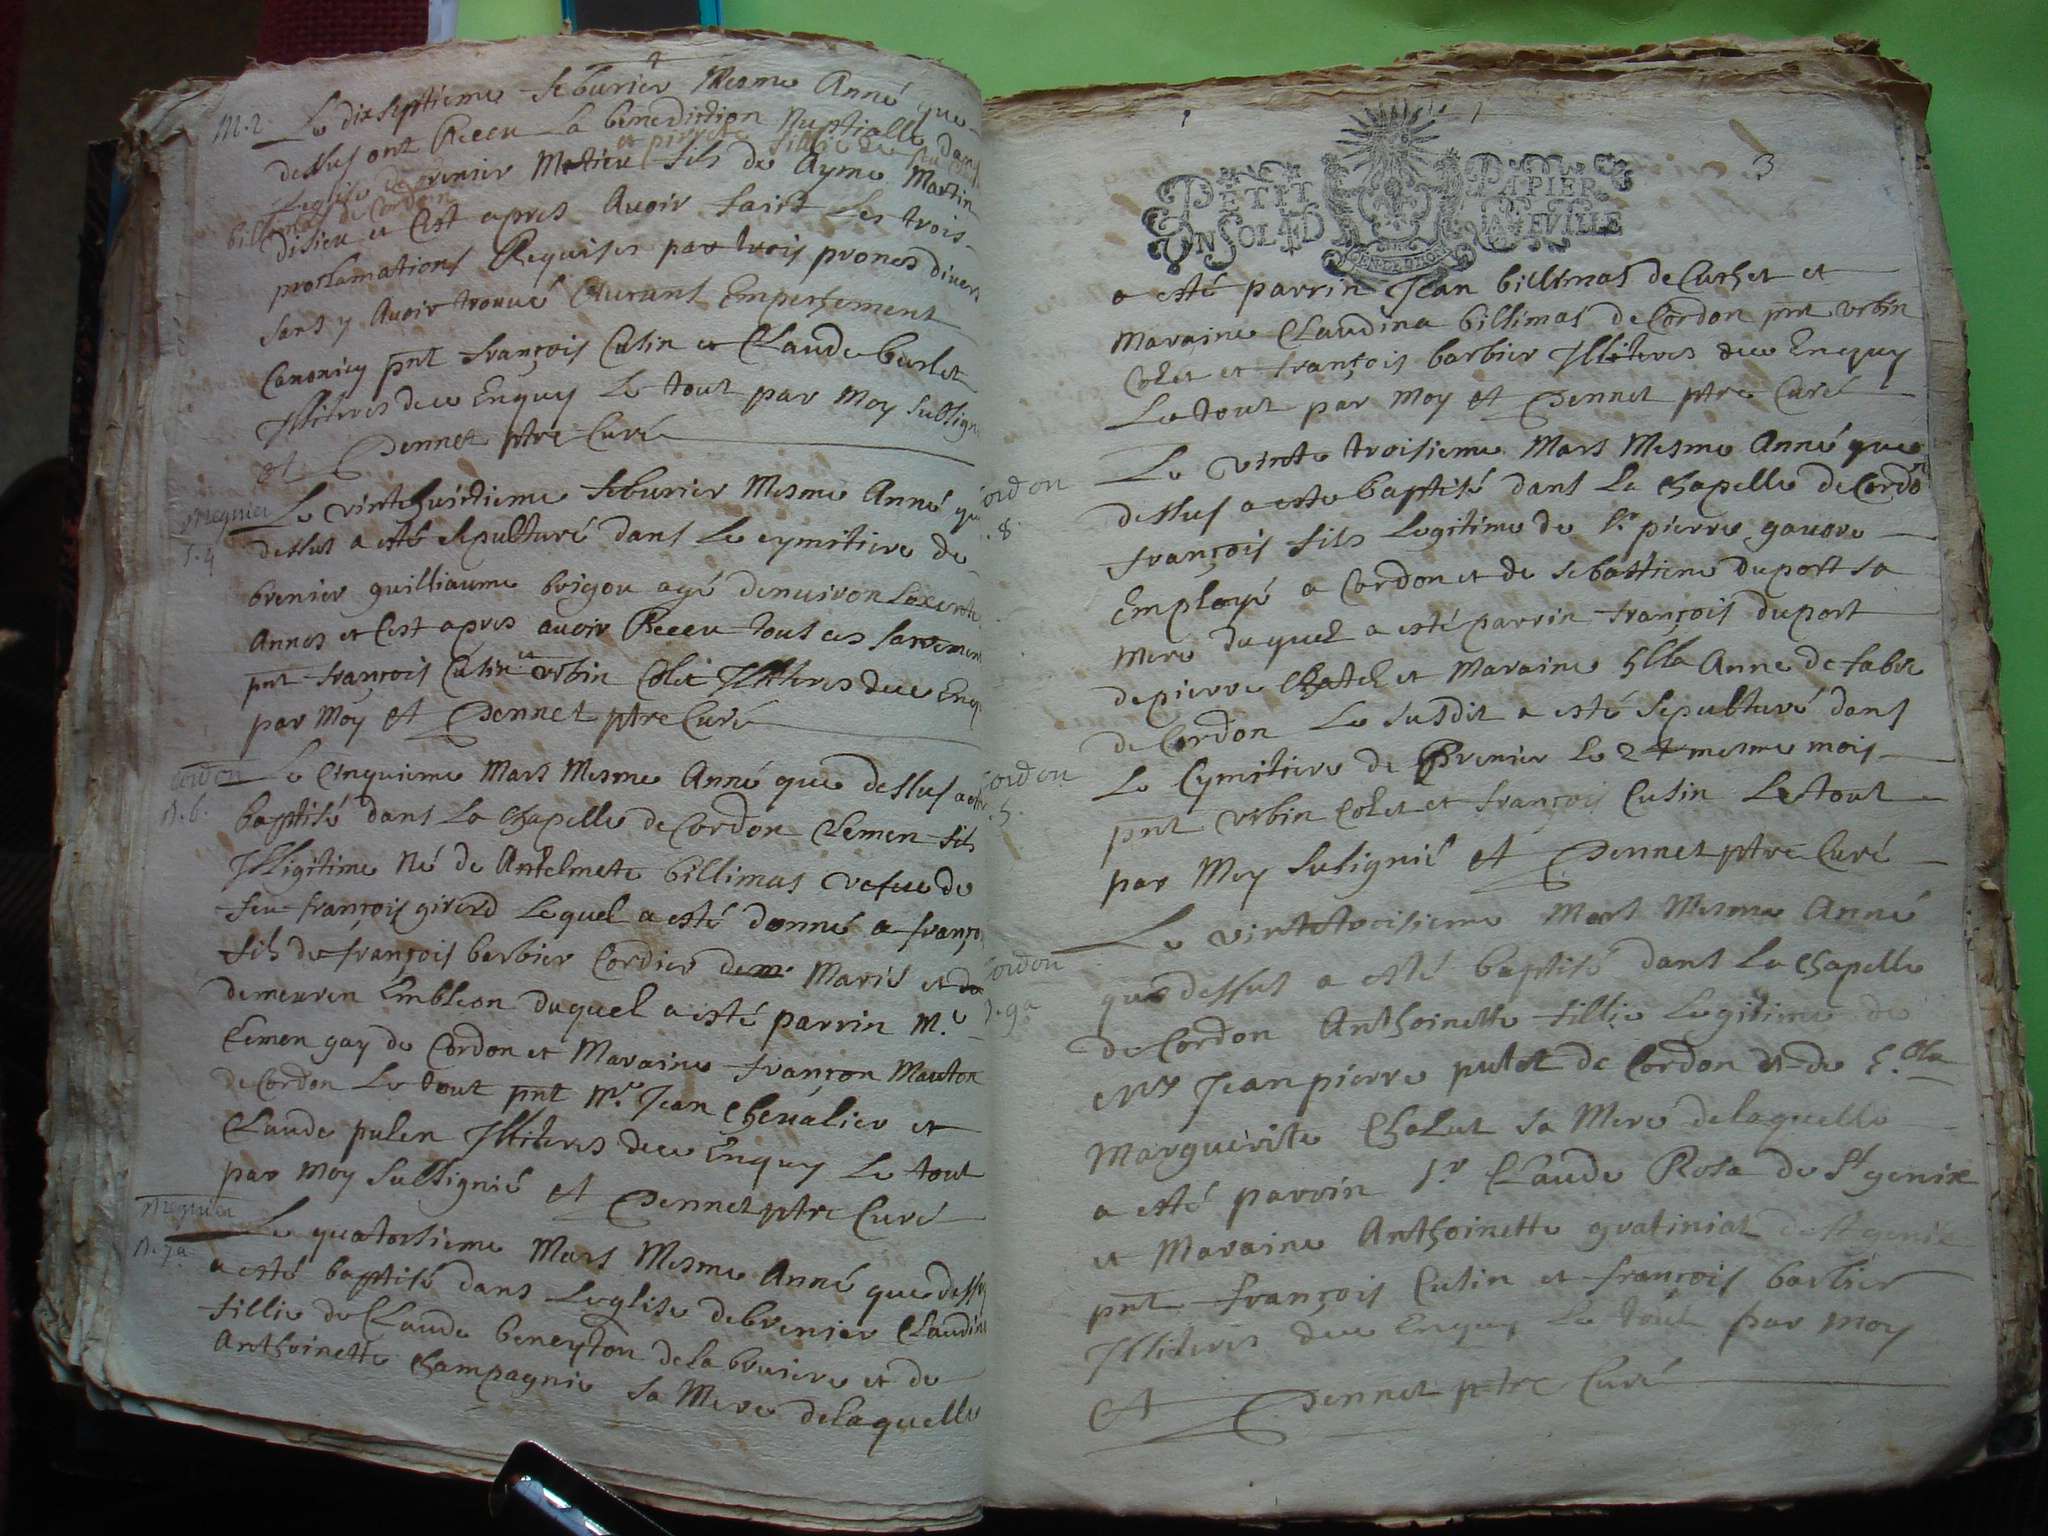 M. 2.
Le dixseptieme feburier Mesme Anné que
dessus ont Reçeu La benediction Nuptialle dans
et pierrete fillie de feu
Leglise de brenier Matieu fils de Ayme Martin
billimas de Cordon
disieu et Cest apres Avoir faict Les trois
proclamations Requises par trois prones divers
sans y Avoir trouué Aucuns Empechement
Canonicq pnt françois Cusin et Claude burlet
Illiteres deue Enquy Le tout par Moy subsigné
et Pennet ptre Curé
Bregnier
S. 4
Le vinthuictieme feburier Mesme Anné que
dessus a esté sepulturé dans Le cymitiere de
brenier guilliaume brigou agé denuiron soixente
Annes et Cest apres auoir Reçeu tous ces sacrement
pnt françois Cusin et vrbin Colet Illiteres deue Enquy
par Moy et Pennet ptre Curé
Cordon
N. 6.
Le Cinquieme Mars Mesme Anné que dessus a esté
baptisé dans La Chapelle de Cordon Clemen fils
Illigitime Né de Antelmete billimas vefue de
feu françois girerd Lequel a esté donné a françois
fils de françois barbier Cordier de Marie et
demeuren Embleon duquel a esté parrin M.e
Clemen gay de Cordon et Maraine françon Mauton
de Cordon Le tout pnt M.e Jean Chevalier et
Claude pulen Illiteres deue Enquy Le tout
par Moy subsignié et Pennet ptre Curé
Bregnier
N. 7.a
Le quatorsieme Mars Mesme Anné que dessus
a esté baptisé dans Leglise de brenier Claudine
fillie de Claude beneyton de la bruiere et de
Anthoinette Champagnie sa Mere delaquelle
3
PETIT PAPIER
UN SOL LA FEUILLE
a esté parrin Jean billimas de Cuchet et
Maraine Claudina billimas de Cordon pnt vrbin
Colet et françois barbier Illiteres deue Enquy
Le tout par Moy et Pennet ptre Curé
Cordon
8.
Le vinte troisieme Mars Mesme Anné que
dessus a esté baptisé dans La Chapelle de Cordon
françois fils Legitime de S.r pierre gauore
Employé a Cordon et de sebastiene duport sa
Mere duquel a esté parrin françois duport
de pierre Chatel et Maraine Anne de fabre
Cordon
5.
de Cordon Le susdit a esté sepulturé dans
Le Cymitiere de Brenier le 24 mesme mois
pnt vrbin Colet et françois Cusin Le tout
par Moy subsignié et Pennet ptre Curé
Cordon
N. 9a
Le vinttroisieme Mars Mesme Anné
que dessus a esté baptisé dans La Chapelle
de Cordon Anthoinette fillie Legitime de
Jean pierre pulet de Cordon et de
Marguerite Chalut sa Mere delaquelle
a esté parrin S.r Claude Rosa de St genix
et Maraine Anthoinette gratiniat de St genix
pnt françois Cusin et françois barbier
Illiteres deue Enquy Le tout par Moy
et Pennet ptre Curé